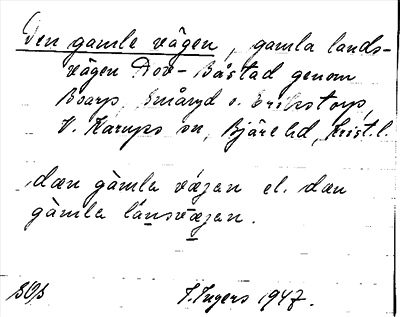 Den gamle vägen, gamla lands-
vägen Dov - Båstad genom
Boarp, Småryd o. Erikstorp,
V. Karups sn, Bjäre hd, Krist. l.
dæn gàmla vǽgen el. dæn
gàmla lánsvæ̱gen.
SOs
I. Ingers 1947.